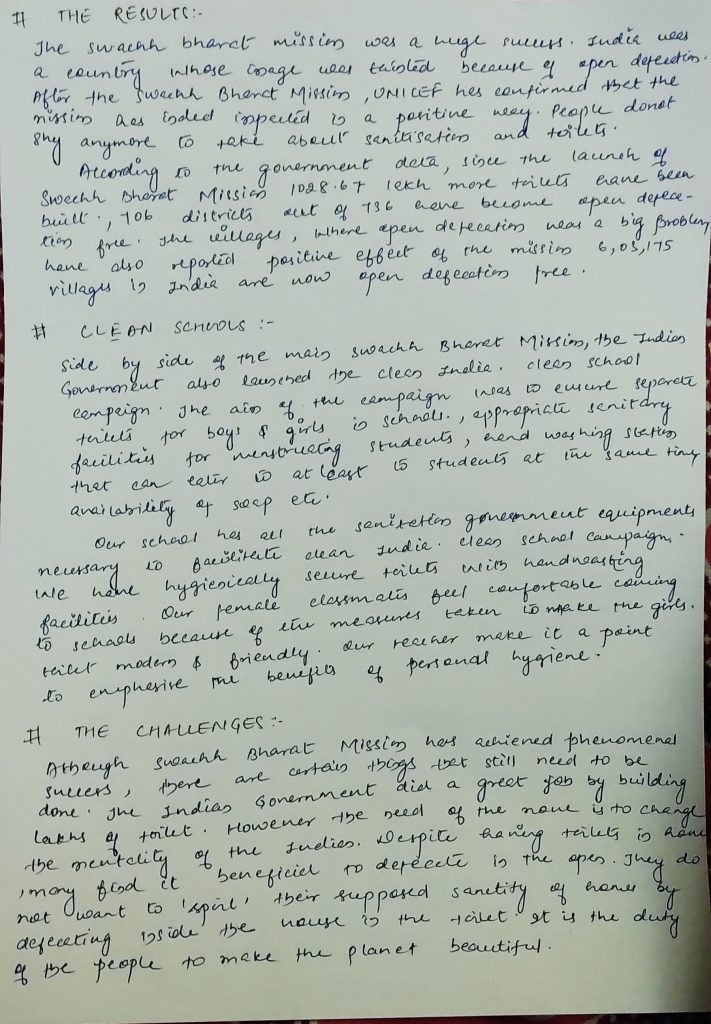 # THE RESULTS:-
The swachh bharat mission was a huge success. India was
a country whose image was tainted because of open defecation.
After the Swachh Bharat Mission, UNICEF has confirmed that the
mission has inded impacted in a positive way. People donot
shy anymore to take about sanitisation and toilets.
According to the government data, since the launch of
Swachh Bharat Mission 1028.67 lakh more toilets have been
built., 706 districts out of 736 have become open defeca-
tion free. The villages, where open defecation was a big problem
have also reported positive effect of the mission 6,03,175
villages in India are now open defecation free.
# CLEAN SCHOOLS :-
Side by side of the main swachh Bharat Mission, the Indian
Government also launched the clean India. clean school
campaign. The aim of the campaign was to ensure separate
toilets for boys & girls in schools., appropriate sanitary
facilities for menstructing students, hand washing station
that can cater to at least 15 students at the same time
availability of soap etc.
Our school has all the sanitation government equipments
necessary to facilitate clean India. clean school campaign.
We have hygienically secure toilets with handwasting
facilities. Our female classmates feel comfortable coming
to schools because of the measures taken to make the girls.
toilet modern & friendly. Our teacher make it a point
to emphasise the benefits of personal hygiene.
# THE CHALLENGES :-
Although swachh Bharat Mission has achieved phenomenal
success, there are certain things that still need to be
done. The Indian Government did a great job by building
lakhs of toilet. However the need of the is to change
the mentality of the Indian. Despite having toilets in home
, many find it beneficial to defecate in the open. They do
not want to 'spoil' their supposed sanctity of homes by
defecating inside the house in the toilet. It is the duty
of the people to make the planet beautiful.